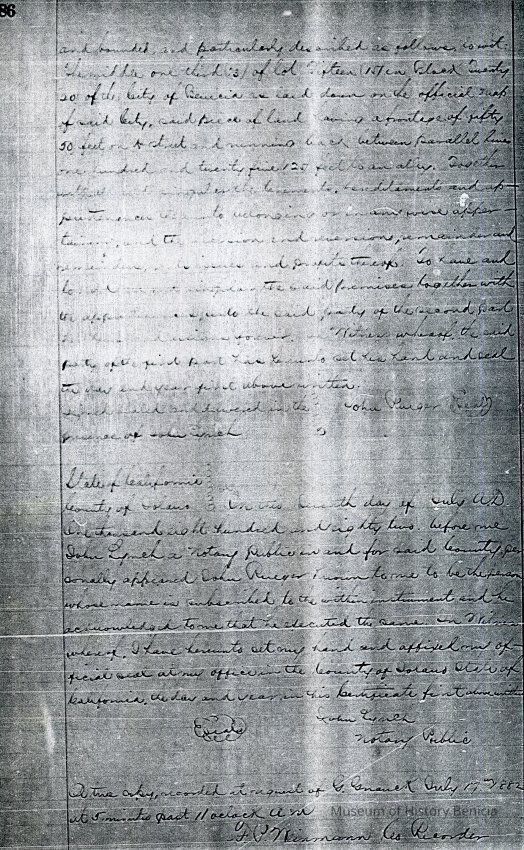 86
and bounded, and particularly described as follows, to wit:
The middle one third (⅓) of lot Fifteen (15) in Block Twenty
20 of the City of Benicia as laid down on the official map
of said City, said piece of land having a frontage of fifty
50 feet on K street and running back between parallel lines
one hundred and twenty five 125 feet to an alley. Together
with all and singular the tenements, hereditaments and ap-
purtenances thereunto belonging or in any wise apper-
taining, and the reversion and reversions, remainder and
remainders, rents issues and profits thereof. To have and
to hold all and singular the said premises together with
the appurtenances, unto the said party of the second part
heirs and assigns forever. In Witness whereof, the said
party of the first part has hereunto set his hand and seal
the day and year first above written.
Signed Sealed and delivered in the John Rueger (Seal)
presence of John Lynch
State of California
County of Solano On this day of July A.D.
One thousand eight hundred and eighty two, before me
John Lynch a Notary Public in and for said County, per
sonally appeared John Rueger known to me to be the person
whose name is subscribed to the within instrument and he
acknowledged to me that he executed the same. In Witness
whereof, I have hereunto set my hand and affixed my of-
ficial seal at my office in the County of Solano State of
California, the day and year in this Certificate first above written
(Seal) John Lynch
Notary Public
A true copy, recorded at request of G. July 17th 1882
at 5 minutes past 11 oclock A M
Museum of History Benicia
Co Recorder